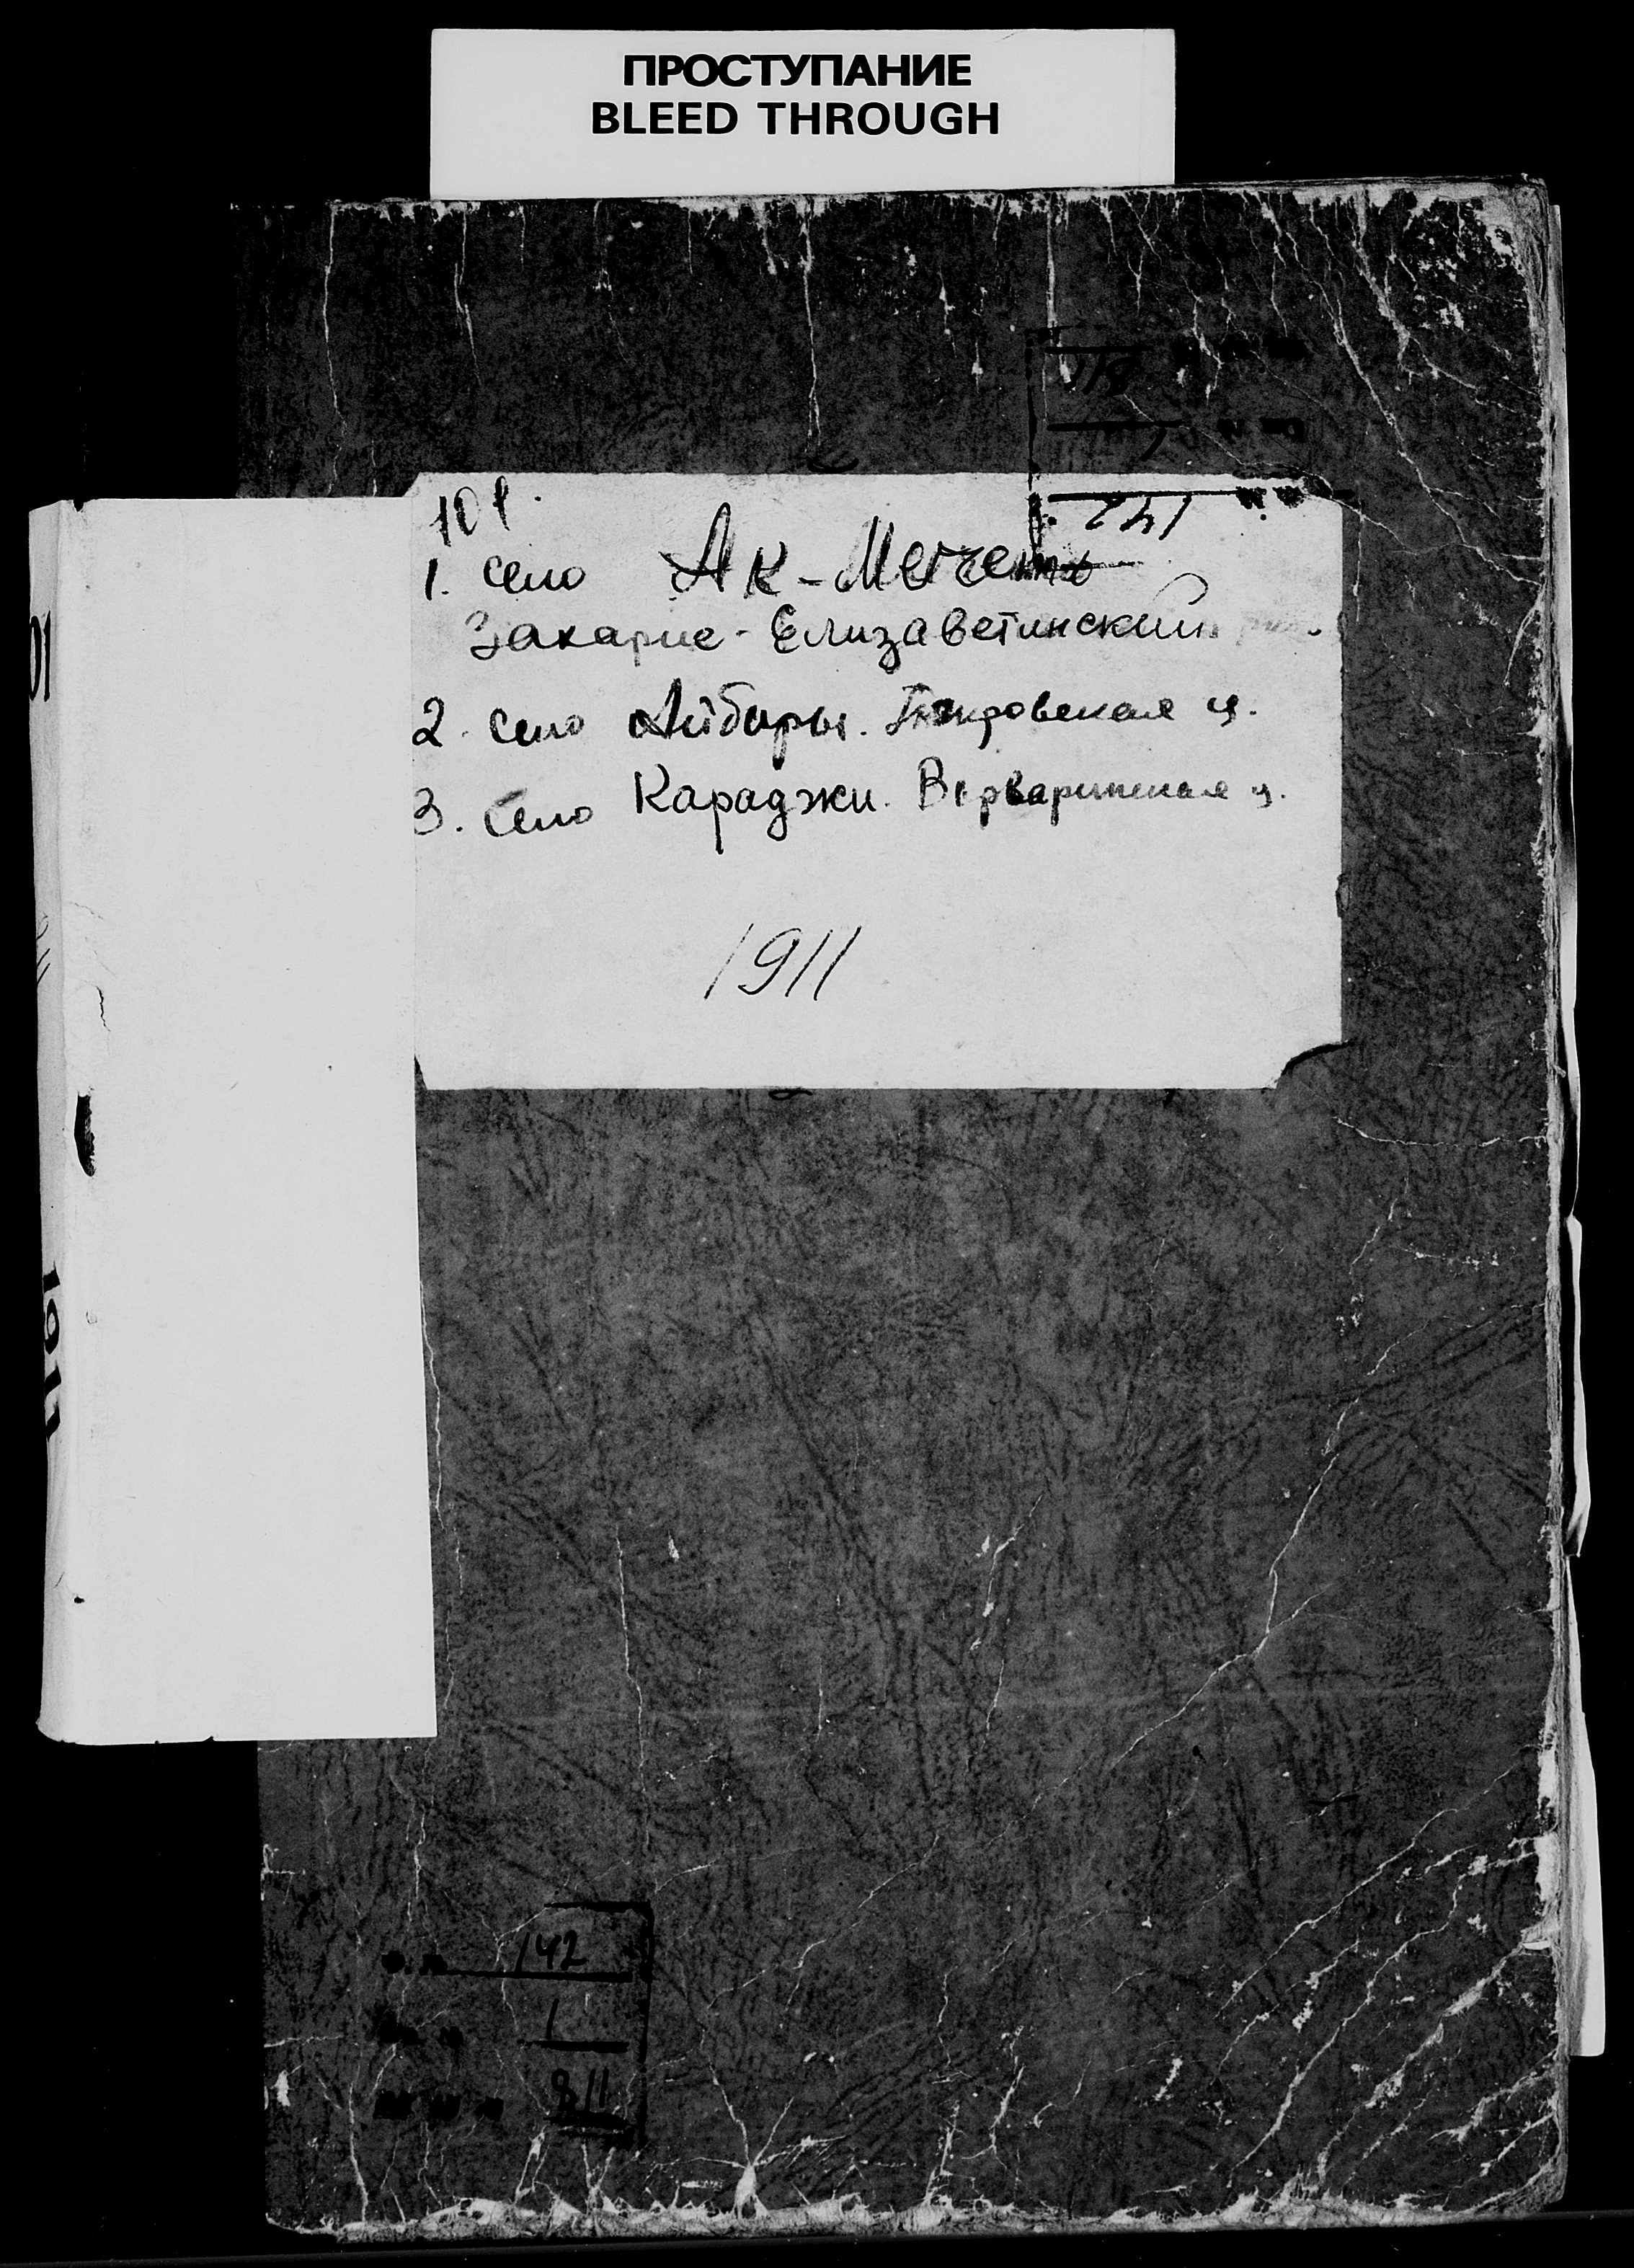 ПРОСТУПАНИЕ
BLEED THROUGH
142
101
1. село Ак-Мечеть
Захарие-Елизаветинский
2. село Айбары. Покровская ц.
3. село Караджи. Варваринская ц.
1911
01
1911
142
1
811